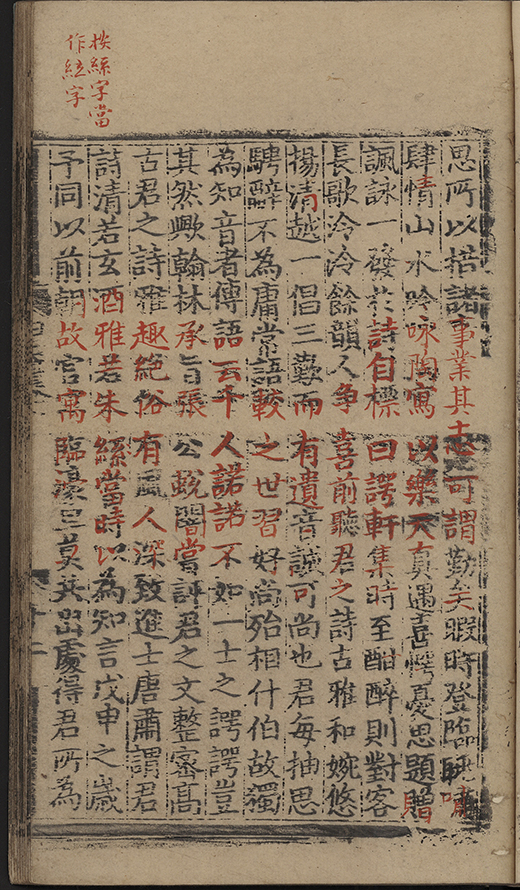 按絲字當
作絃字
思所以措諸事業其志可謂勤矣暇時登臨嘯
肆情山水吟咏陶寫以樂天真遇喜愕憂思題贈
諷詠一發於詩自標曰諤軒集時至酣醉則對客
長歌泠泠餘韻人爭喜前聽君之詩古雅和婉悠
揚清越一倡三歎而有遺音誠可尚也君每抽思
騁辭不為庸常語較之世習好尚殆相什伯故獨
為知音者傳語云千人諾諾不如一士之諤諤豈
其然歟翰林承旨張公蛻闇嘗評君之文整密高
古君之詩雅趣絕俗有風人深致進士唐肅謂君
詩清若玄酒雅若朱絲當時以為知言戊申之歲
予同以前朝故官寓臨濠旦莫共出處得君所為